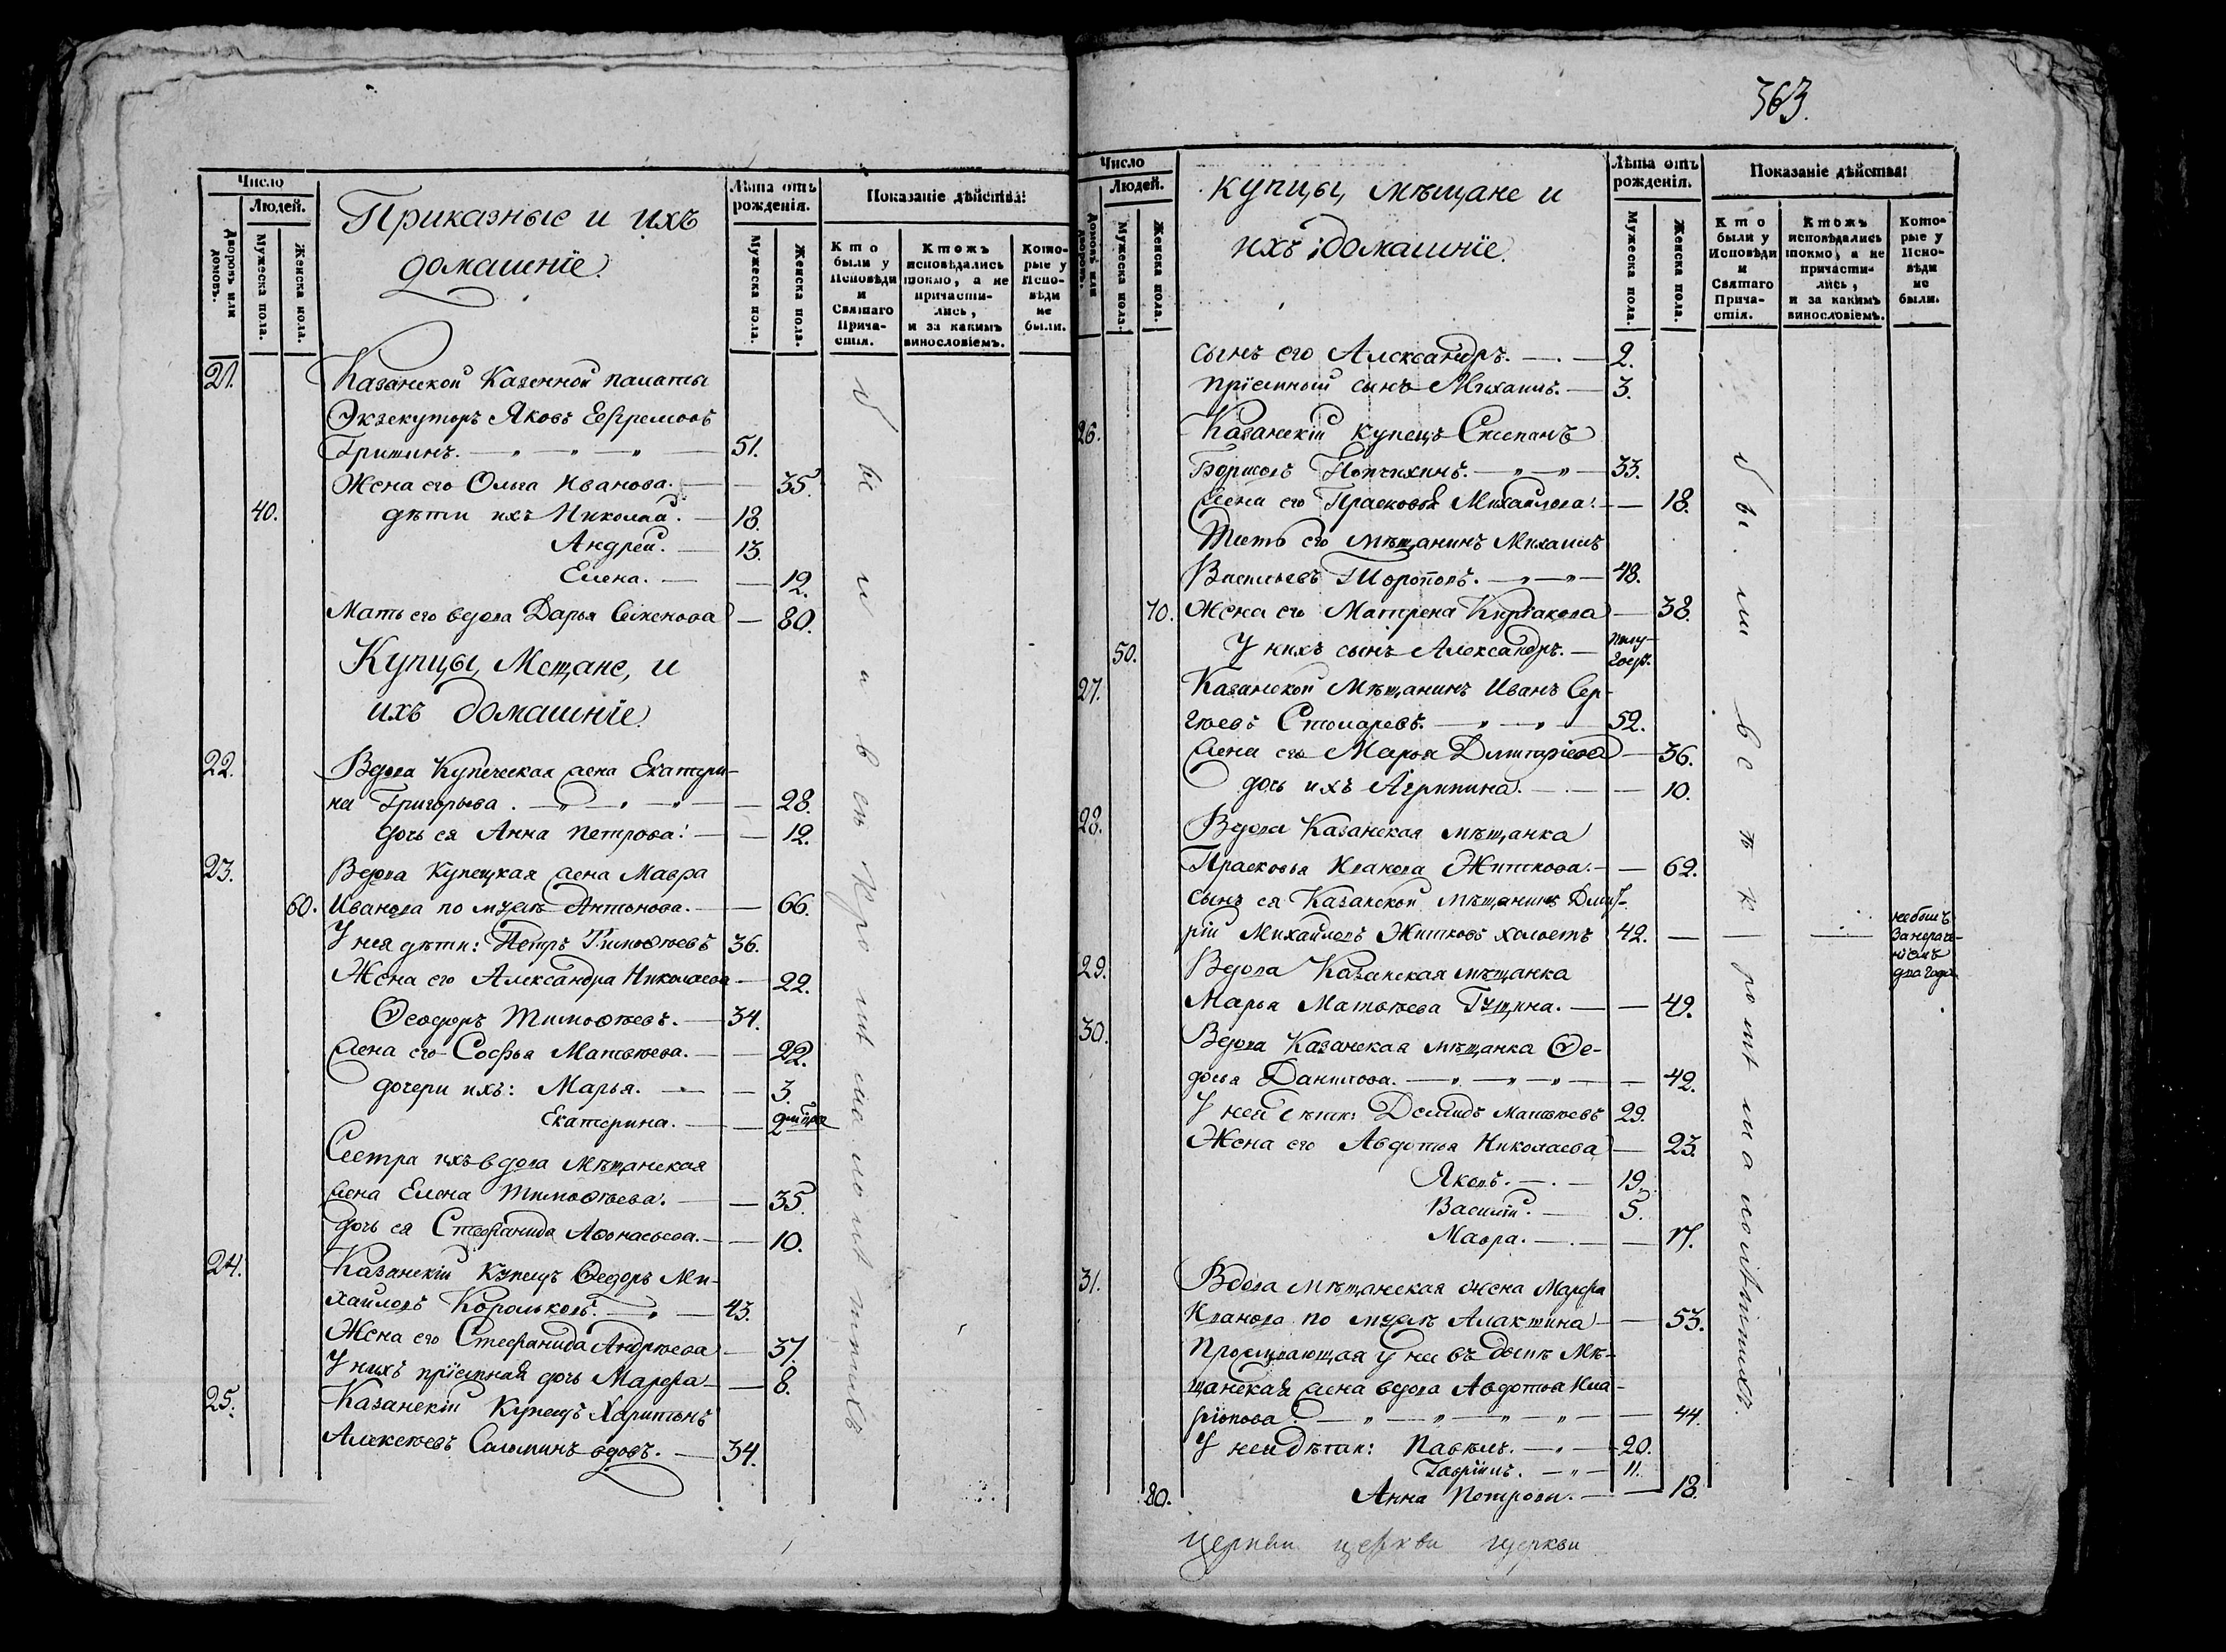 363.
Число
Людей.
Дворовъ или домовъ.
Мужеска пола.
Женска пола.
Приказные и ихъ
домашніе.
Лѣта отъ рожденія.
Мужеска пола.
Женска пола.
Показаніе дѣйства:
Кто были у Исповѣди и Святаго Прича-стія.
Ктожъ исповѣдались токмо, а не причасти-лись, и за какимъ винословіемъ.
Кото-рые у Испо-вѣди не были.
21. Казанской Казенной палаты
Экзекуторъ Яковъ Ефремовъ
Гришинъ. 51.
Жена его Ольга Иванова. 35.
40. дѣти ихъ Николай. 18.
Андрей. 13.
Елена. 12.
Мать его вдова Дарья Семенова 80.
Купцы, Мещане, и
ихъ домашніе.
22. Вдова Купеческая жена Екатери-
на Григорьева. 28.
дочь ея Анна Петрова. 12.
23. Вдова Купецкая жена Мавра
60. Иванова по мужѣ Антонова. 66.
У нея дѣти: Петръ Тимоѳеевъ 36.
Жена его Александра Николаева 22.
Ѳеодоръ Тимоѳеевъ. 34.
Жена его Софья Матвѣева. 22.
дочери ихъ: Марья. 3.
Екатерина. 2
Сестра ихъ вдова Мѣщанская
жена Елена Тимоѳеева. 35.
дочь ея Стефанида Аѳонасьева. 10.
24. Казанскій Купецъ Ѳедоръ Ми-
хайловъ Корольковъ. 43.
Жена его Стефанида Андрѣева 37.
У нихъ пріемная дочь Марфа 8.
25. Казанскій Купецъ Харитонъ
Алексѣевъ вдовъ. 34.
Число
Людей.
Домовъ или дворовъ.
Мужеска пола.
Женска пола.
купцы, мѣщане и
ихъ домашніе.
Лѣта отъ рожденія.
Мужеска пола.
Женска пола.
Показаніе дѣйства:
Кто были у Исповѣди и Святаго Прича-стія.
Ктожъ исповѣдались токмо, а не причасти-лись, и за какимъ винословіемъ.
Кото-рые у Испо-вѣди не были.
сынъ его Александръ. 2.
пріемный сынъ Михаилъ. 3.
26. Казанскій купецъ Степанъ
Борисовъ 33.
Жена его Прасковья Михайлова. 18.
Тесть его мѣщанинъ Михаилъ
Васильевъ 48.
70. Жена его Матрена 38.
50. У нихъ сынъ Александръ. полу-
годъ.
27. Казанской Мѣщанинъ Иванъ Сер-
гѣевъ Столяревъ. 52.
Жена его Марья Димитріева 36.
дочь ихъ Агрипина. 10.
28. Вдова Казанская мѣщанка
Прасковья Иванова Житкова. 62.
Сынъ ея Казанской мѣщанинъ Дмит-
рій Михайловъ Житковъ холостъ 42.
не былъ
за нераче-
ніемъ
два года
29. Вдова Казанская мѣщанка
Марья Матвѣева Гущина. 49.
30. Вдова Казанская мѣщанка Ѳе-
досья Данилова. 42.
У ней дѣти: Демидъ Матвѣевъ 29.
Жена его Авдотья Николаева 23.
Яковъ. 19.
Василій. 5.
Мавра. 17.
31. Вдова мѣщанская жена Марфа
Иванова по мужѣ Алакшина 53.
Проживающая у нее въ домѣ Мѣ-
щанская жена вдова Авдотья Ила-
ріонова. 44.
У ней дѣти: Павелъ. 20.
Гавріилъ. 11.
80. Анна Петровы. 18.
церкви церкви церкви